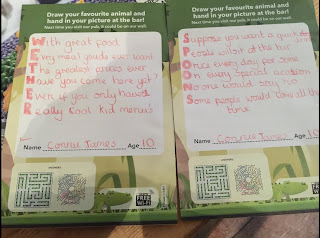 Draw your favourite animal and
hand in your picture at the bar!
Next time you visit our pub, it could be on our wall.
With great food
Every meal youde ever want
The greatest prices ever
Have you come here yet?
Ever if you only have
Really cool kid menu's
Name Connie James Age 10
ANSWERS
FREE
Wi-Fi
Draw your favourite animal and
hand in your picture at the bar!
Next time you visit our pub, it could be on our wall.
Suppose you want a quick
People will sit at the bar
Once every day for some
On every special occasion
No one would say no
Some people would come all the
time
Name Connie James Age 10
ANSWERS
FREE
Wi-Fi